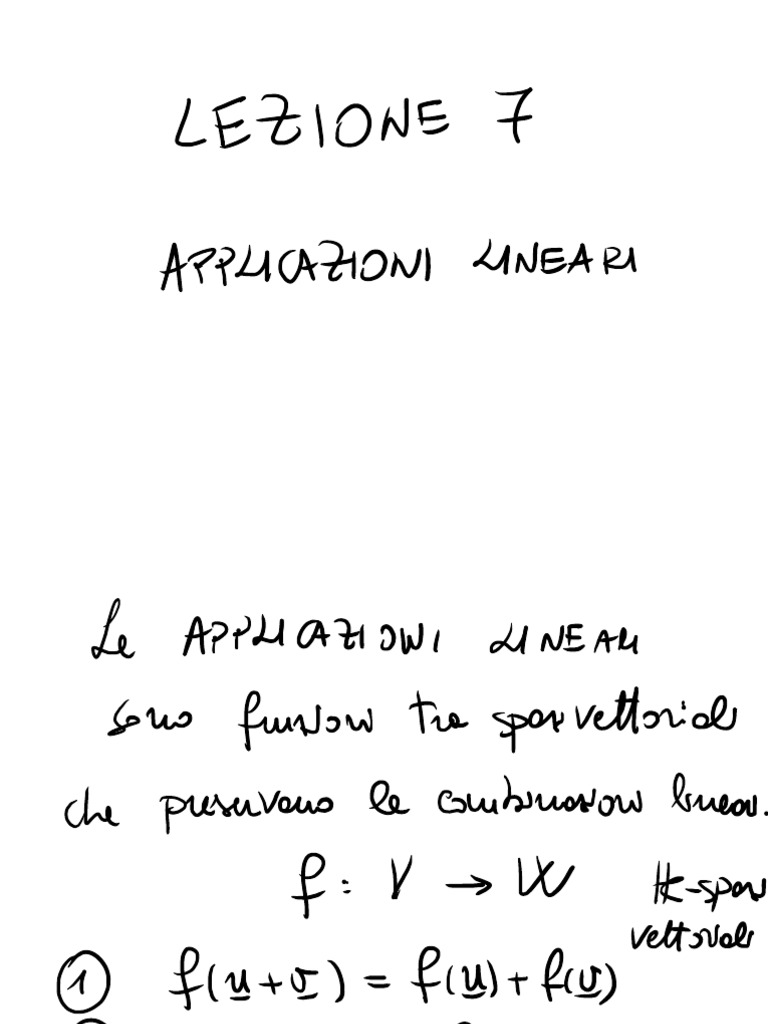 LEZIONE 7
APPLICAZIONI LINEARI
Le APPLICAZIONI LINEARI
sono funzioni tra spazi vettoriali
che preservano le combinazioni lineari.
f : V → W    K-spazi
vettoriali
① f(u+v) = f(u) + f(v)